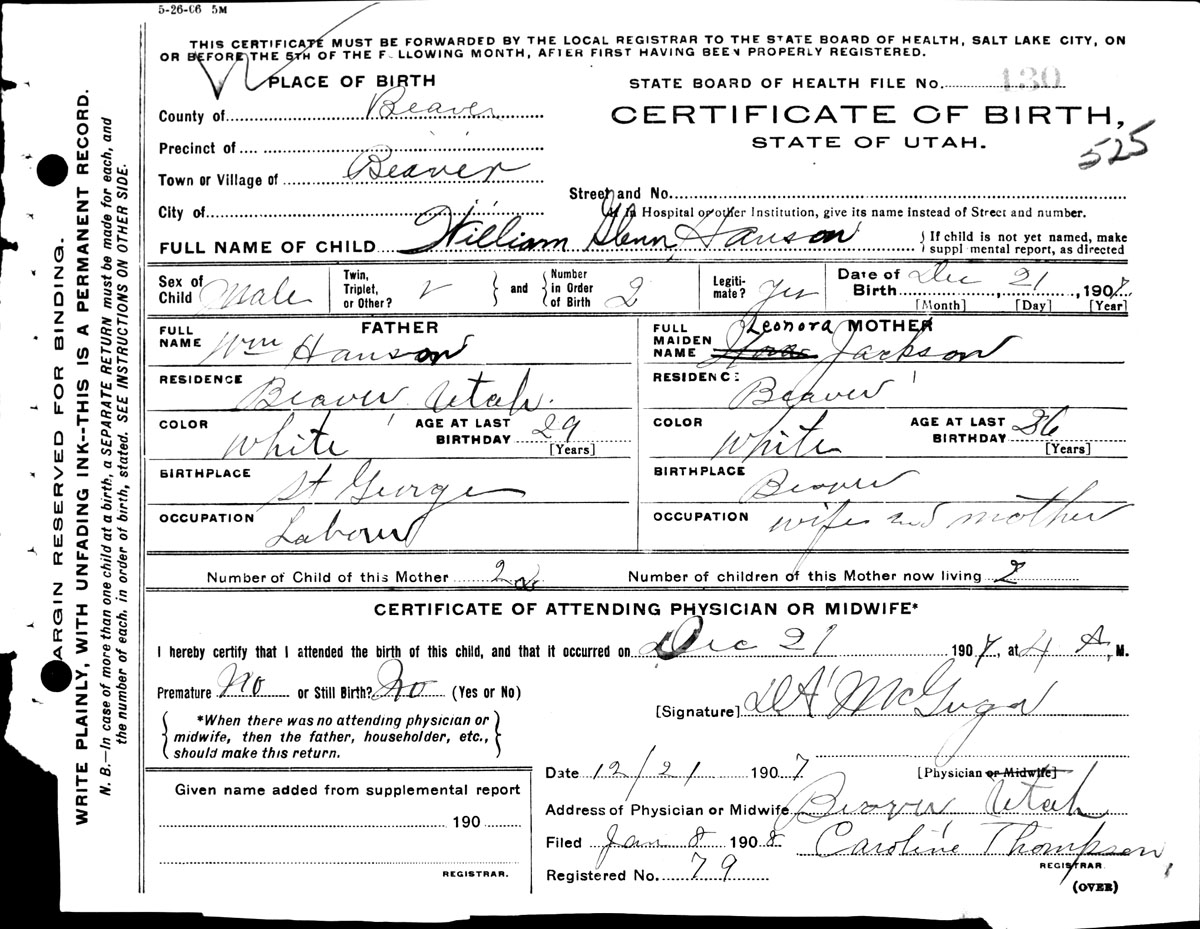 5-26-06 5M
THIS CERTIFICATE MUST BE FORWARDED BY THE LOCAL REGISTRAR TO THE STATE BOARD OF HEALTH, SALT LAKE CITY, ON
OR BEFORE THE 5TH OF THE F LLOWING MONTH, AFTER FIRST HAVING BEEN PROPERLY REGISTERED.
PLACE OF BIRTH
STATE BOARD OF HEALTH FILE No. 130
County of Beaver
CERTIFICATE OF BIRTH,
STATE OF UTAH.
525
Precinct of
Town or Village of Beaver
Street and No.
City of
If in Hospital or other Institution, give its name instead of Street and number.
FULL NAME OF CHILD William Glenn Hanson
{ If child is not yet named, make
{ suppl mental report, as directed
Sex of Child Male
Twin, Triplet, or Other?
and
Number in Order of Birth 2
Legiti- mate? Yes
Date of Birth Dec 21, 1907
[Month] [Day] [Year]
FATHER
FULL NAME Wm Hanson
RESIDENCE Beaver Utah.
COLOR White
AGE AT LAST BIRTHDAY 29
[Years]
BIRTHPLACE St George
OCCUPATION Labour
MOTHER
FULL MAIDEN NAME Leonora Jackson
RESIDENCE Beaver
COLOR White
AGE AT LAST BIRTHDAY 36
[Years]
BIRTHPLACE Beaver
OCCUPATION wife and mother
Number of Child of this Mother 2nd
Number of children of this Mother now living 2
CERTIFICATE OF ATTENDING PHYSICIAN OR MIDWIFE*
I hereby certify that I attended the birth of this child, and that it occurred on Dec 21 1907, at 4 A. M.
Premature No or Still Birth? No (Yes or No)
[Signature] DA McGregor
*When there was no attending physician or
midwife, then the father, householder, etc.,
should make this return.
Date 12/21 1907
[Physician or Midwife]
Given name added from supplemental report
190
REGISTRAR.
Address of Physician or Midwife Beaver Utah
Filed Jan 8 1908 Caroline Thompson,
REGISTRAR
Registered No. 79
(OVER)
MARGIN RESERVED FOR BINDING.
WRITE PLAINLY, WITH UNFADING INK--THIS IS A PERMANENT RECORD.
N. B.—In case of more than one child at a birth, a SEPARATE RETURN must be made for each, and
the number of each, in order of birth, stated. SEE INSTRUCTIONS ON OTHER SIDE.